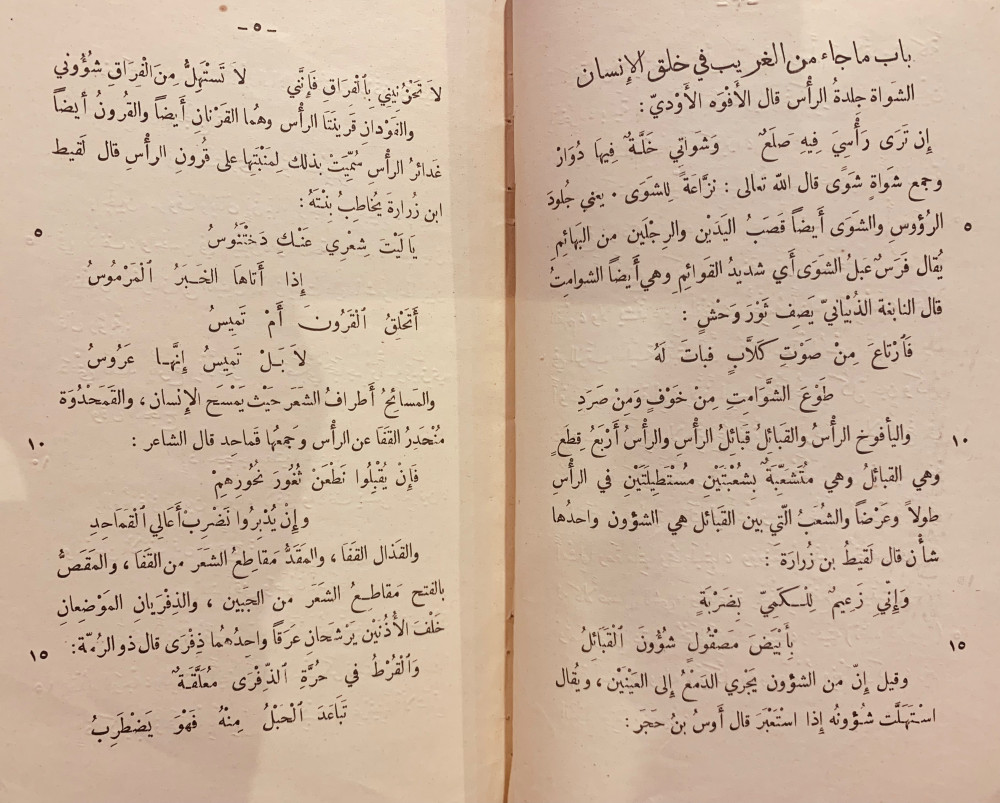 باب ما جاء من الغريب في خلق الإنسان
الشواة جلدةُ الرأْس قال الأَفْوَه الأَوْديّ :
إِن تَرَى رَأْسِيَ فِيهِ صَلَعٌ وَشَوَاتِي خَلَّةٌ فِيهَا دُوَارْ
وجمع شَواةٍ شَوًى قال الله تعالى : نزَّاعَةً لِلشَوَى · يعني جُلودَ
الرُؤوسِ والشَوَى أَيضاً قَصَبُ اليَدَيْن والرِجْلَين من البَهائِمِ ٥
يُقال فَرَسٌ عَبلُ الشَوَى أَي شديدُ القَوائِمِ وهي أَيضاً الشوامِتُ
قال النابغة الذُبْيانيّ يَصِف ثَوْرَ وَحْشٍ :
فَٱرْتَاعَ مِنْ صَوْتِ كَلَّابٍ فَباتَ لَهُ
طَوْعَ الشَّوَامِتِ مِنْ خَوْفٍ وَمِنْ صَرَدِ
واليأفوخ الرأْسُ والقَبائِلُ قَبائِلُ الرأْسِ والرأْسُ أَرْبَعُ قِطَعٍ ١٠
وهي القَبائلُ وهي مُتَشَعِّبَةٌ بِشُعْبَتَيْنِ مُسْتَطِيلَتَيْنِ في الرأْسِ
طولاً وعَرْضاً والشُعَبُ الّتي بين القَبائل هي الشؤون واحدُها
شأْن قال لَقيطُ بن زُرارَةَ :
وَإِنِّي زَعِيمٌ لِلْكَمِيِّ بِضَرْبَةٍ
بِأَبْيَضَ مَصْقُولٍ شُؤُونَ ٱلْقَبَائِلُ ١٥
وقيل إِنّ من الشؤون يَجْري الدَمْعُ إِلى العَيْنَيْن ، ويُقال
استَهَلَّت شُؤونُه إِذا استَعْبَرَ قال أَوسُ بنُ حَجَر :
— ٥ —
لَا تَحْزُنِينِي بِٱلْفِرَاقِ فَإِنَّنِي لَا تَسْتَهِلُّ مِنَ الْفِرَاقِ شُؤُونِي
والفَوْدانِ قَرينَتَا الرأْس وهُما القَرْنانِ أَيضاً والقُرونُ أَيضاً
غَدائرُ الرأْسِ سُمِّيَتْ بذلك لِمَنْبَتِها على قُرونِ الرأْسِ قال لَقيط
ابن زُرارةَ يُخاطِبُ بِنْتَهُ :
يَا لَيْتَ شِعْرِي عَنْكِ دَخْتَنُوسُ ٥
إِذا أَتاهَا الخَبَرُ ٱلْمَرْمُوسُ
أَتَحْلِقُ ٱلْقَرُونَ أَمْ تَمِيسُ
لَا بَلْ تَمِيسُ إِنَّهَا عَرُوسُ
والمَسائحُ أَطرافُ الشعَرَ حَيْث يَمْسَحُ الإِنسان ، والقَمَحْدُوَة
مُنْحَدِرُ القَفَا عن الرأْس وجَمعُها قَماحِد قال الشاعر : ١٠
فَإِنْ يُقْبِلُوا نَطْعَنْ ثُغُورَ نُحُورِهِمْ
وَإِنْ يُدْبِرُوا نَضْرِبْ أَعَالِي ٱلْقَمَاحِدِ
والقَذال القَفَا ، والمَقَذّ مَقاطِعُ الشعَر من القَفَا ، والمَقَصُّ
بالفَتح مَقاطِعُ الشعَر من الجَبين ، والذِفْرَيانِ المَوْضِعانِ
خَلْفَ الأُذنَيْن يَرْشَحانِ عَرَقاً واحِدُهُما ذِفْرَى قال ذو الرُمّة : ١٥
وَٱلْقُرْطُ فِي حُرَّةِ ٱلذِّفْرَى مُعَلَّقَةٌ
تَبَاعَدَ ٱلْحَبْلُ مِنْهُ فَهْوَ يَضْطَرِبُ